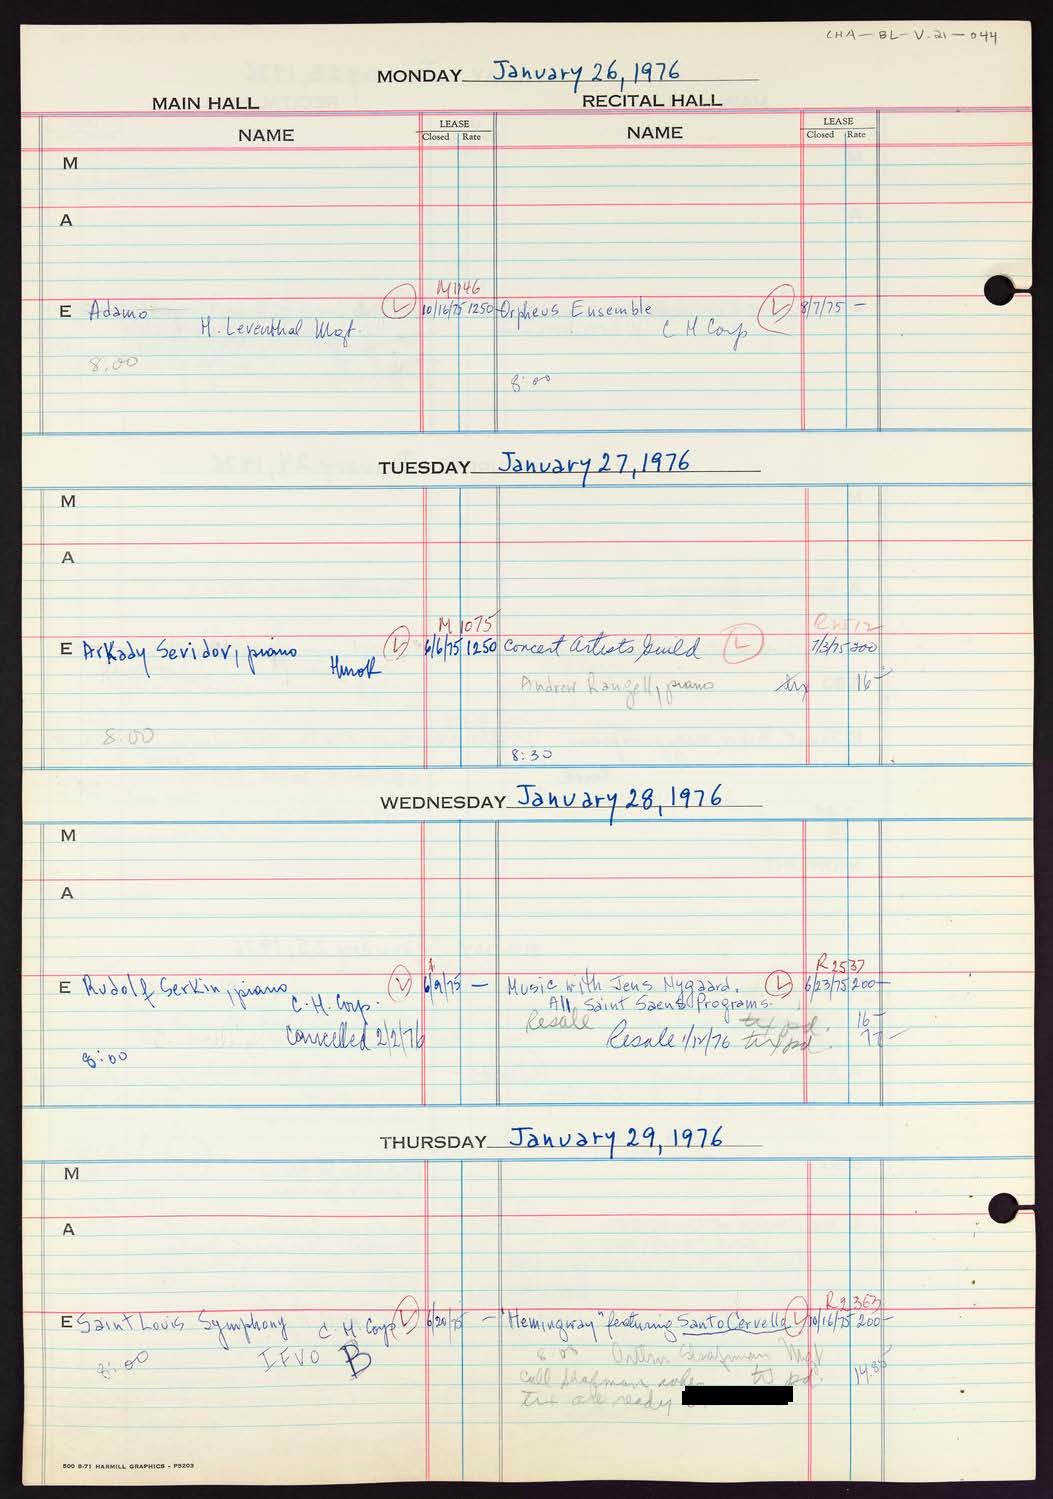 CHA-BL-V.21-044
MONDAY January 26, 1976
MAIN HALL RECITAL HALL
NAME LEASE Closed Rate NAME LEASE Closed Rate
M
A
M1146
E Adamo L 10/16/75 1250 Orpheus Ensemble L 8/7/75 -
H. Leventhal Mgt. C H Corp
8:00
8:00
TUESDAY January 27, 1976
M
A
M 1075
E Arkady Sevidov, piano L 6/6/75 1250 Concert Artists Guild L 7/3/75 200
Hurok
Andrew Rangell, piano tix 16-
8:00
8:30
WEDNESDAY January 28, 1976
M
A
R2537
E Rudolf Serkin, piano L 6/9/75 - Music with Jens Nygaard. L 6/23/75 200-
C.H. Corp. All Saint Saens Programs.
Resale tix pd. 16-
Cancelled 2/2/76 Resale 1/12/76 tix pd.
8:00
THURSDAY January 29, 1976
M
A
R2363
E Saint Louis Symphony C H Corp L 6/20/75 - "Hemingway" featuring Santo Cervello L 10/16/75 200-
8:00 IFVO B
8:00 Chapman Mgt
call Chapman when tix pd. 14.85
tix are ready
500 8-71 HARMILL GRAPHICS - P5203